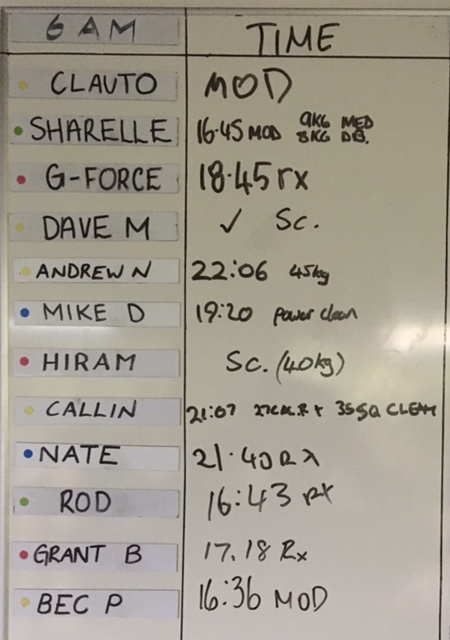 6 AM TIME
CLAUTO MOD
SHARELLE 16:45 MOD 9KG MED 8KG DB.
G-FORCE 18.45 rx
DAVE M ✓ Sc.
ANDREW N 22:06 45kg
MIKE D 19:20 power clean
HIRAM Sc. (40kg)
CALLIN 21:07 35 SQ CLEAN
NATE 21.40 RX
ROD 16:43 RX
GRANT B 17.18 Rx
BEC P 16:36 MOD